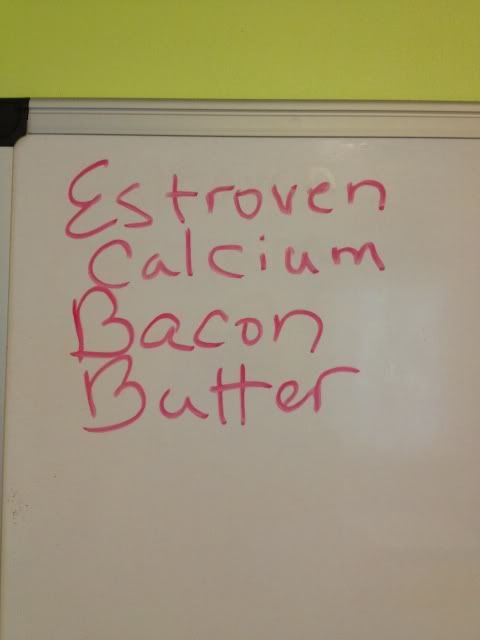 Estroven
Calcium
Bacon
Butter